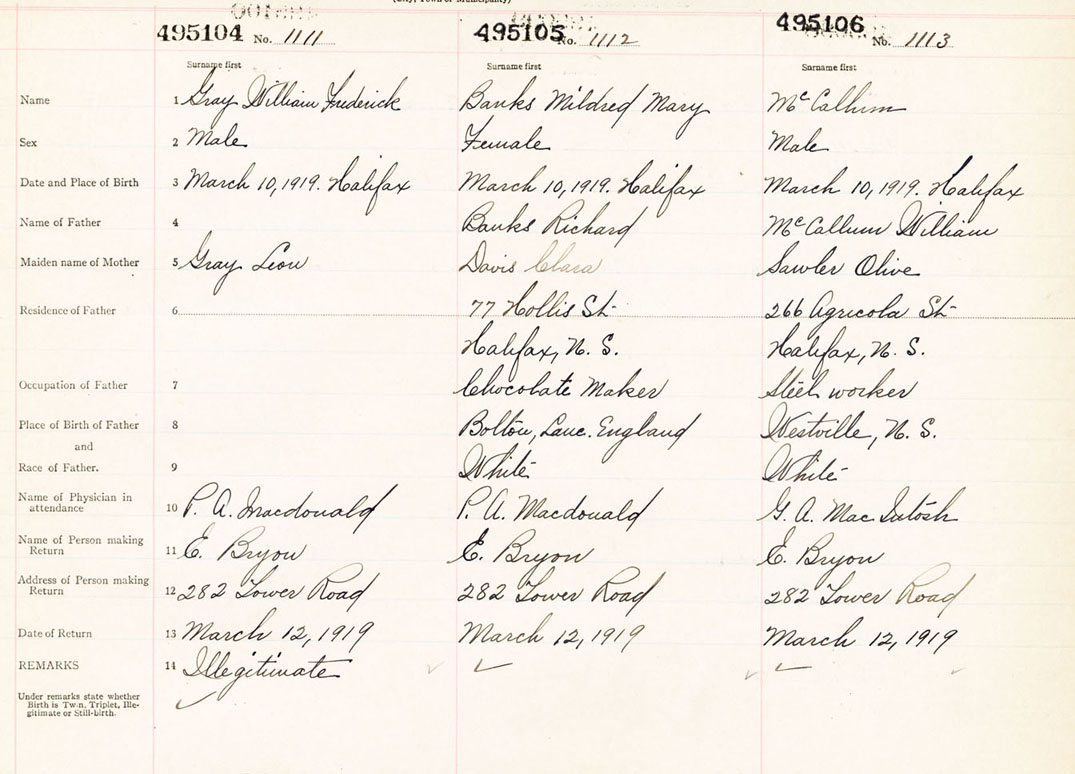 (City, Town or Municipality)
495104 No. 1111 495105 No. 1112 495106 No. 1113
Surname first Surname first Surname first
Name 1 Gray William Frederick Banks Mildred Mary McCallum
Sex 2 Male Female Male
Date and Place of Birth 3 March 10, 1919. Halifax March 10, 1919. Halifax March 10, 1919. Halifax
Name of Father 4 Banks Richard McCallum William
Maiden name of Mother 5 Gray Leon Davis Clara Sawler Olive
Residence of Father 6 77 Hollis St. 266 Agricola St.
Halifax, N. S. Halifax, N. S.
Occupation of Father 7 Chocolate Maker Steel worker
Place of Birth of Father 8 Bolton, Lanc. England Westville, N. S.
and
Race of Father. 9 White White
Name of Physician in
attendance 10 P. A. Macdonald P. A. Macdonald G. A. MacIntosh
Name of Person making
Return 11 E. Bryon E. Bryon E. Bryon
Address of Person making
Return 12 282 Tower Road 282 Tower Road 282 Tower Road
Date of Return 13 March 12, 1919 March 12, 1919 March 12, 1919
REMARKS 14 Illegitimate
Under remarks state whether
Birth is Twin, Triplet, Ille-
gitimate or Still-birth.